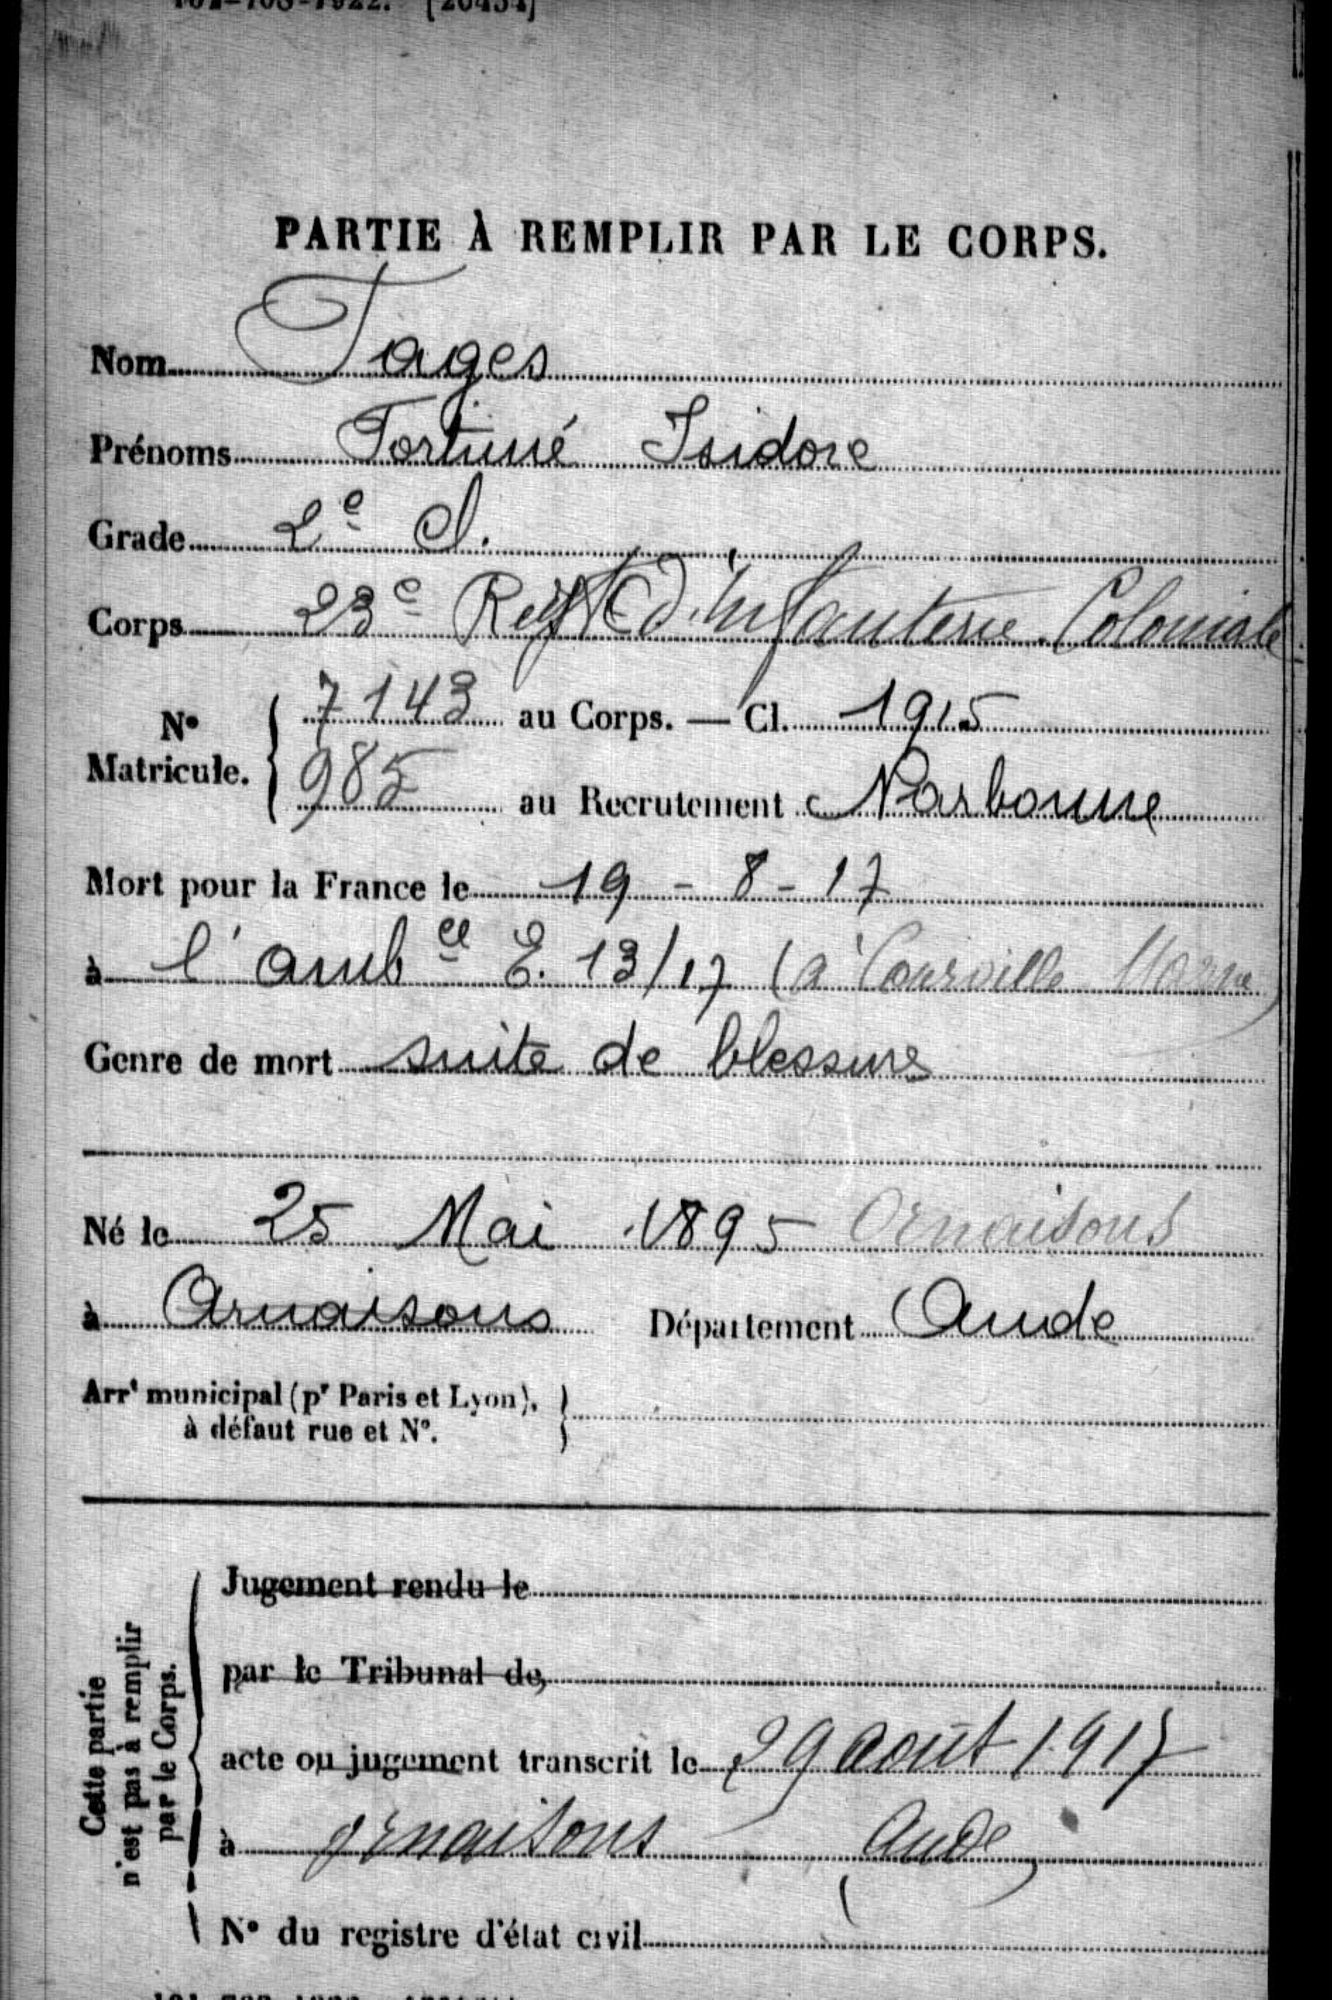 PARTIE À REMPLIR PAR LE CORPS.
Nom Fages
Prénoms Fortuné Isidore
Grade 2e cl.
Corps 23e Regt d'Infanterie Coloniale
No Matricule. { 7143 au Corps. — Cl. 1915
985 au Recrutement Narbonne
Mort pour la France le 19 - 8 - 17
à l'ambce E. 13/17 (à Courville Marne)
Genre de mort suite de blessures
Né le 25 Mai 1895 Ornaisons
à Arnaisons Département Aude
Arrt municipal (pr Paris et Lyon),
à défaut rue et No.
Cette partie
n'est pas à remplir
par le Corps.
Jugement rendu le
par le Tribunal de
acte ou jugement transcrit le 29 août 1917
à ornaisons (Aude)
No du registre d'état civil